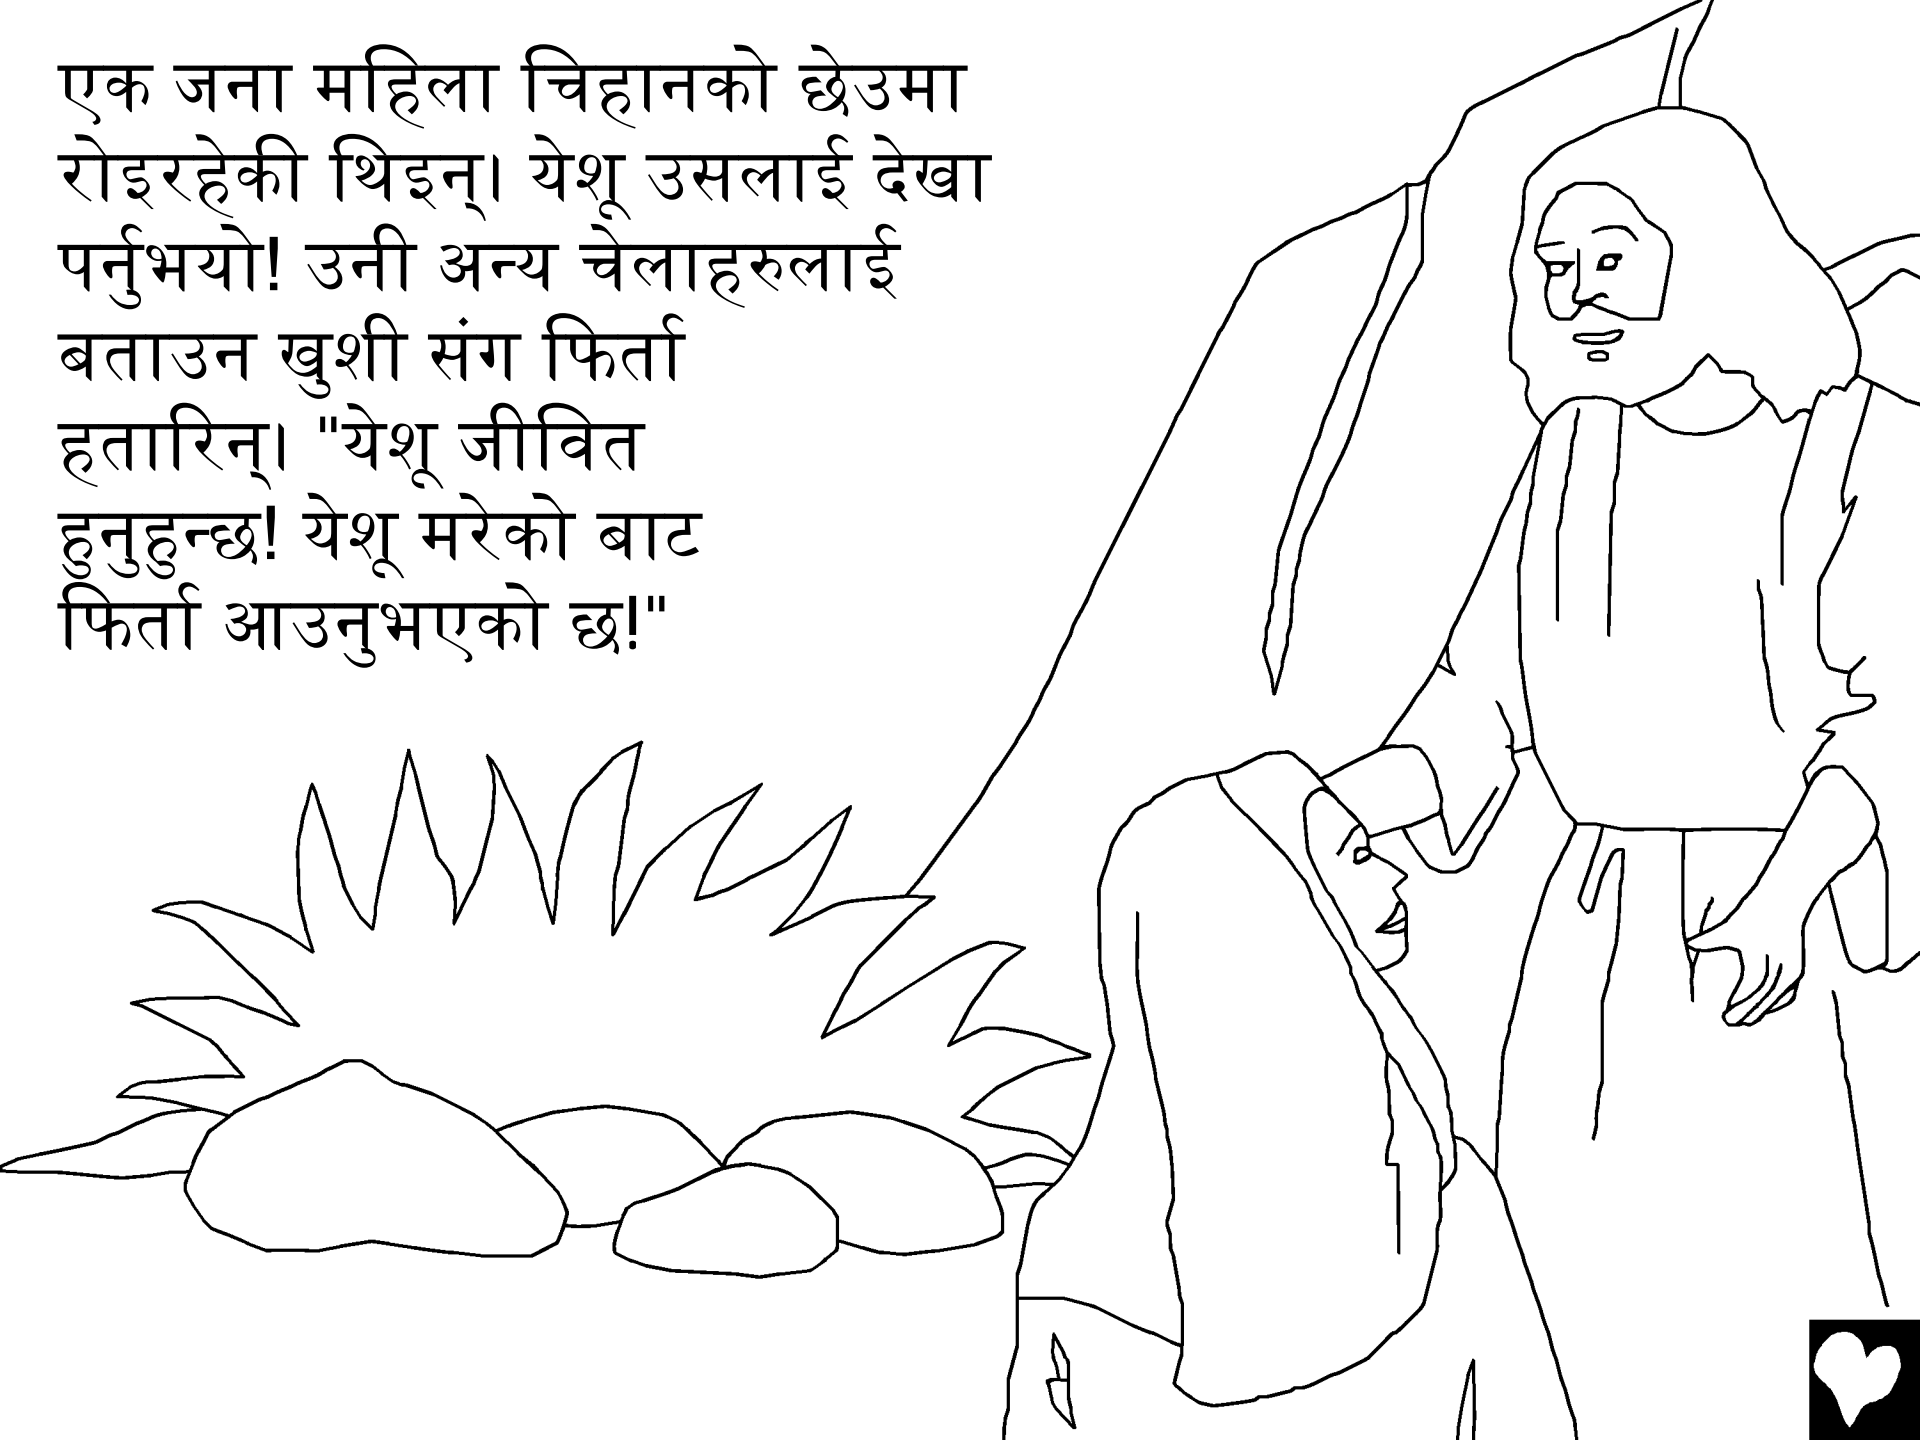 एक जना महिला चिहानको छेउमा
रोइरहेकी थिइन्। येशू उसलाई देखा
पर्नुभयो! उनी अन्य चेलाहरुलाई
बताउन खुशी संग फिर्ता
हतारिन्। "येशू जीवित
हुनुहुन्छ! येशू मरेको बाट
फिर्ता आउनुभएको छ!"